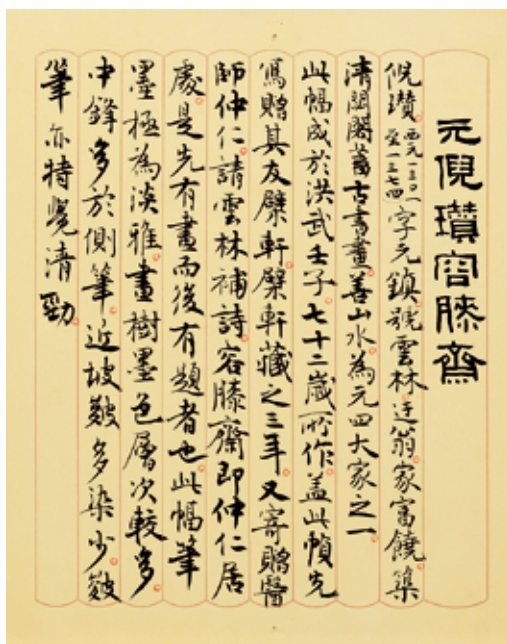 元倪瓚容膝齋
倪瓚西元一三〇一至一三七四字元鎮號雲林迂翁家富饒築
清閟閣蓄古書畫善山水為元四大家之一
此幅成於洪武壬子七十二歲所作蓋此幀先
寫贈其友檗軒檗軒藏之三年又寄贈醫
師仲仁請雲林補詩容膝齋即仲仁居
處是先有畫而後有題者也此幅筆
墨極為淡雅畫樹墨色層次較多
中鋒多於側筆近坡皴多染少皴
筆亦特覺清勁